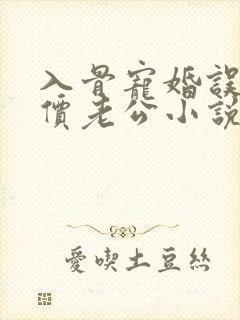 入骨寵婚誤
價老公小說
愛喫土豆絲